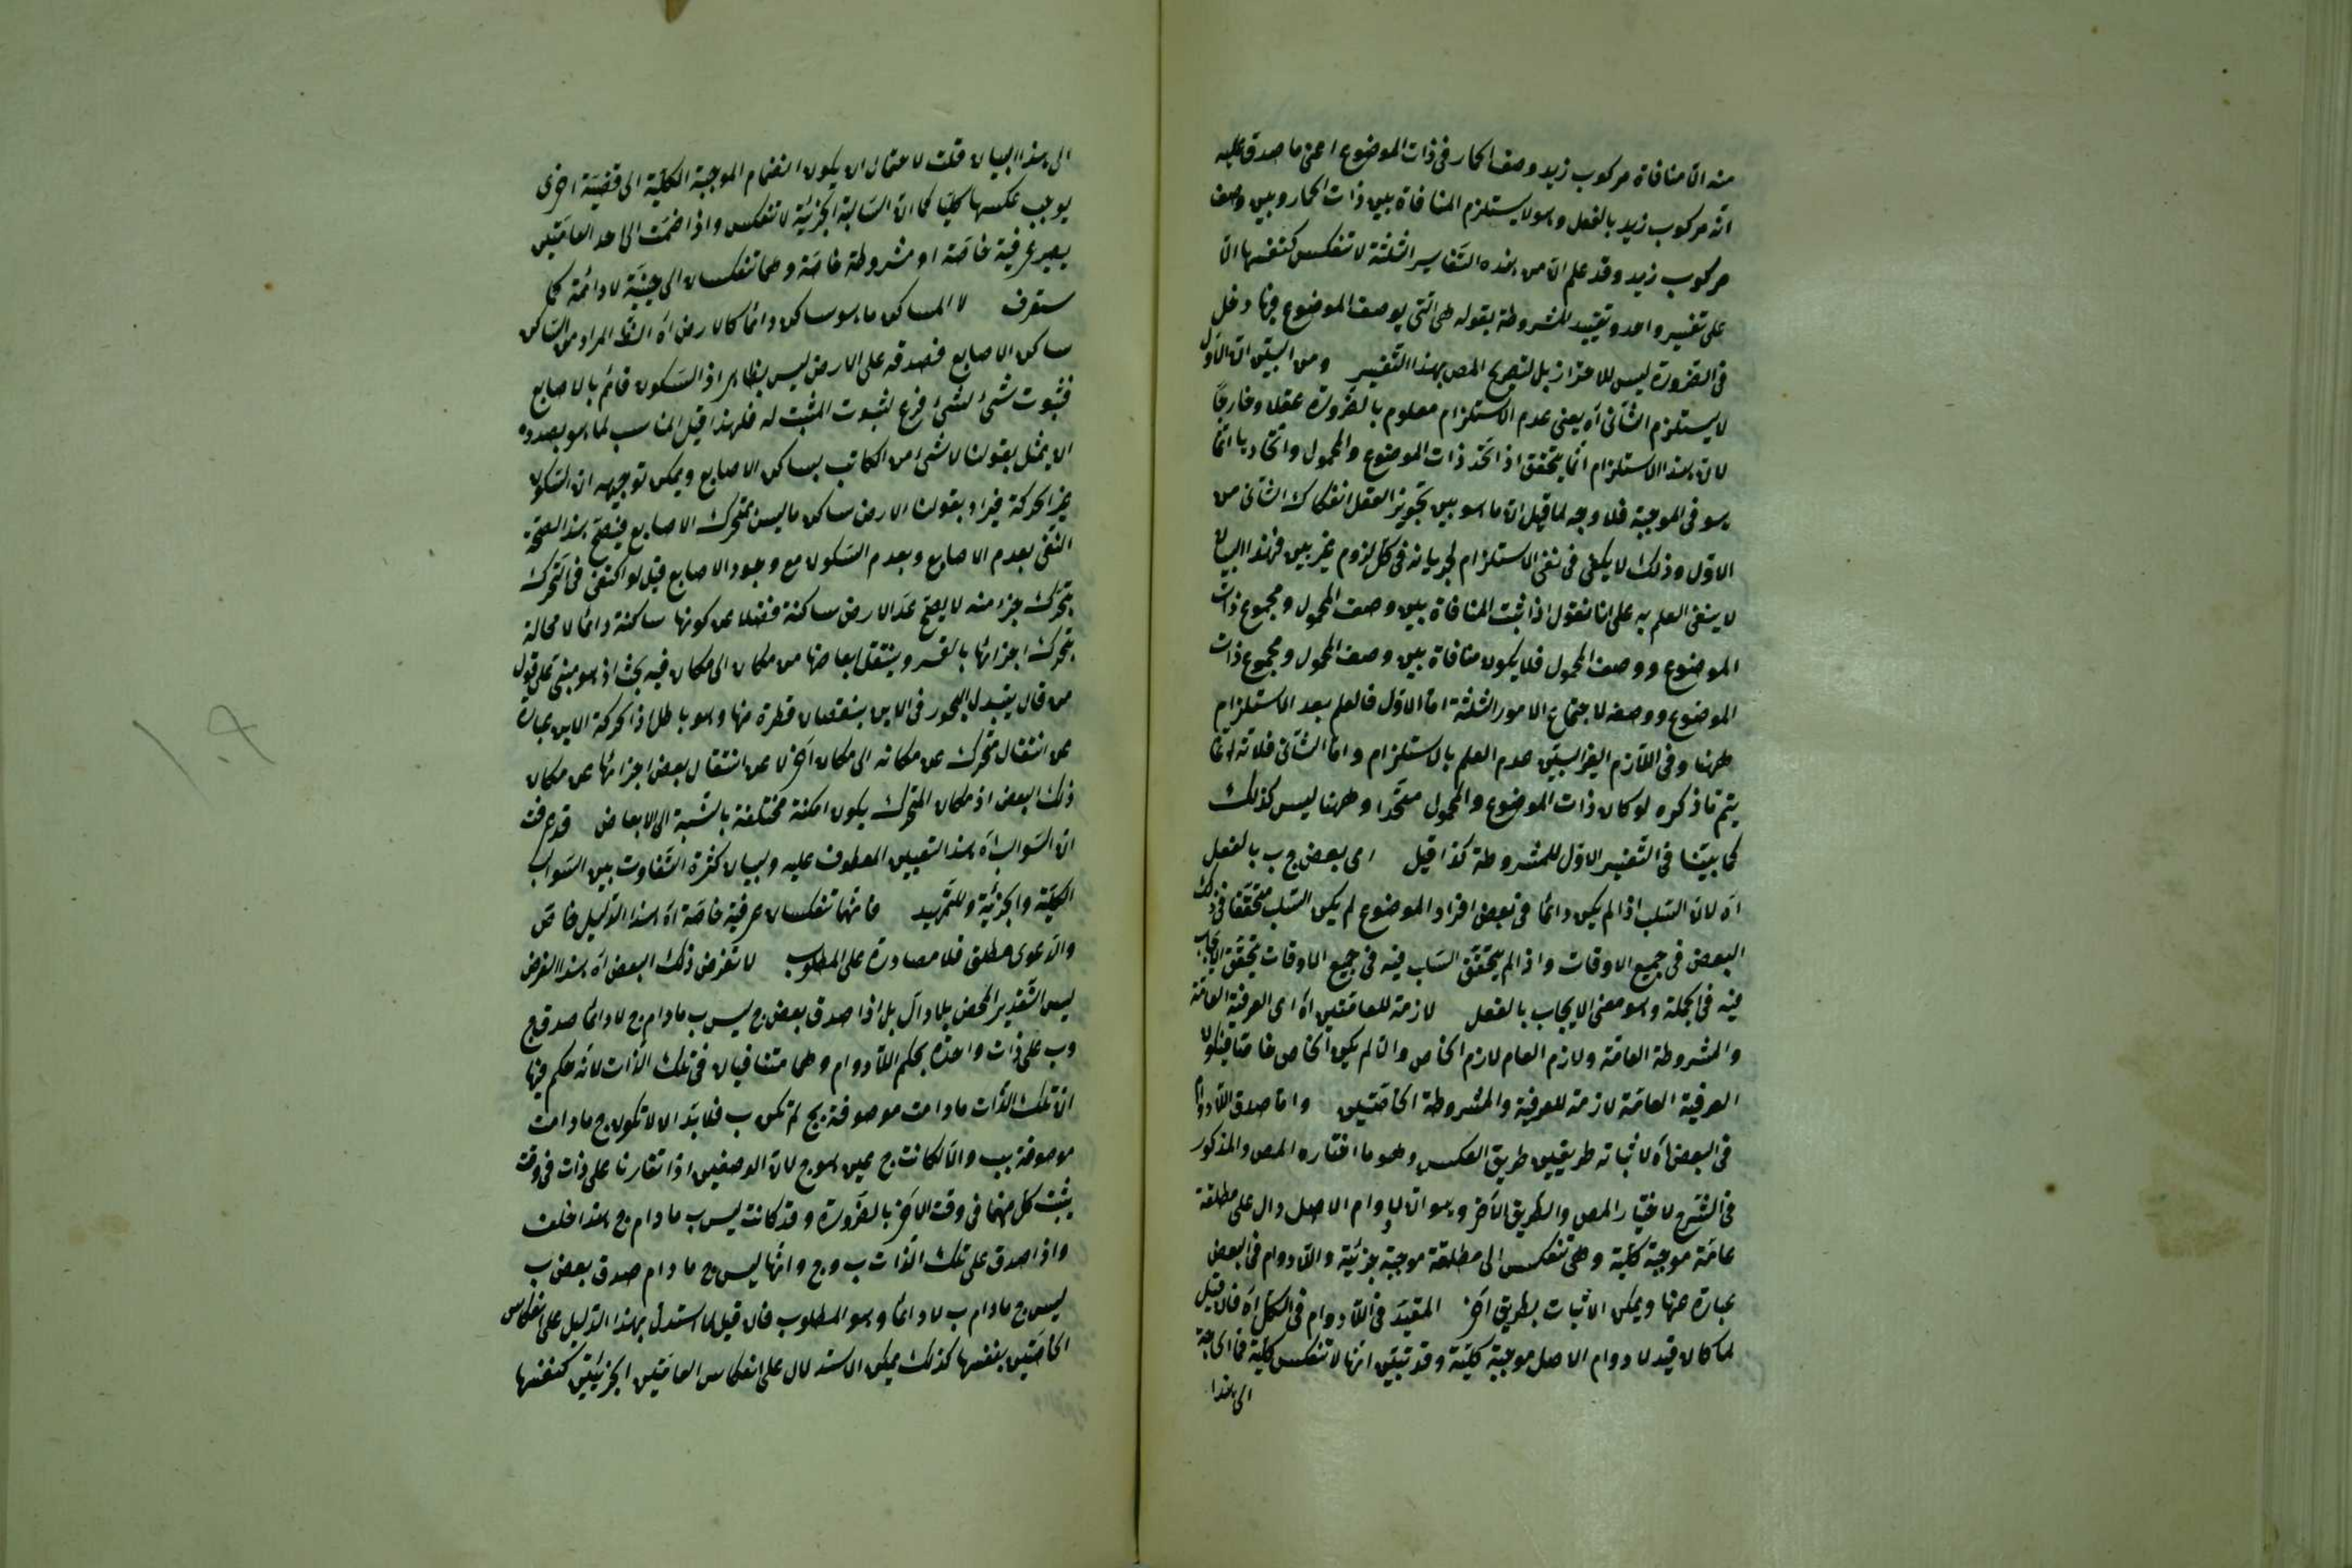 منه ان منافاة مركوب زيد وصف الحمار فى ذات الموضوع اعنى ما صدق عليه
انه مركوب زيد بالفعل وهو لا يستلزم المنافاة بين ذات الحمار وبين وصف
مركوب زيد وقد علم ان من هذه التفاسير الثلثة لا تنعكس كنفسها الا
على تفسير واحد وتقييد المشروطة بقوله هى التى يوصف الموضوع فيها دخل
فى الضرورة ليس للاحتراز بل لتصريح المص بهذا التفسير ومن البين ان الاول
لا يستلزم الثانى اه يعنى عدم الاستلزام معلوم بالضرورة عقلا وخارجا
لان هذا الاستلزام انما يتحقق اذا اتحد ذات الموضوع والمحمول واتحادهما انما
هو فى الموجبة فلا وجه لما قيل ان ما هو بين تجويز العقل انفكاك الثانى من
الاول وذلك لا يكفى فى نفى الاستلزام لجريانه فى كل لزوم غير بين فهذا البيان
لا ينفى العلم به على انا نقول اذا ثبت المنافاة بين وصف المحمول ومجموع ذات
الموضوع ووصف المحمول فلا يكون منافاة بين وصف المحمول ومجموع ذات
الموضوع ووصفه لاجتماع الامور الثلثة اما الاول فالعلم بعد الاستلزام
ههنا وفى اللازم الغير البين عدم العلم بالاستلزام واما الثانى فلانه انما
يتم ما ذكره لو كان ذات الموضوع والمحمول متحدا وههنا ليس كذلك
كما بينا فى التفسير الاول للمشروطة كذا قيل اى بعض ج ب بالفعل
اه لان السلب اذا لم يكن دائما فى بعض افراد الموضوع لم يكن السلب متحققا فى ذلك
البعض فى جميع الاوقات واذا لم يتحقق السلب فيه فى جميع الاوقات يتحقق الايجاب
فيه فى الجملة وهو معنى الايجاب بالفعل لازمة للعامتين اه اى العرفية العامة
والمشروطة العامة ولازم العام لازم الخاص والا لم يكن الخاص خاصا فيكون
العرفية العامة لازمة للعرفية والمشروطة الخاصتين واما صدق اللادوام
فى البعض اه لاثباته طريقين طريق العكس وهو ما اختاره المص والمذكور
فى الشرح لاختيار المص والطريق الآخر وهو ان لادوام الاصل دال على مطلقة
عامة موجبة كلية وهى تنعكس الى مطلقة موجبة جزئية واللادوام فى البعض
عبارة عنها ويمكن الاثبات بطريق آخر المقيد فى اللادوام فى الكل اه فان قيل
لما كان قيد لادوام الاصل موجبة كلية وقد تبين انها لا تنعكس كلية فما الحاجة
الى هذا
الى هذا البيان قلت لاحتمال ان يكون انضمام الموجبة الكلية الى قضية اخرى
يوجب عكسها كليا كما ان السالبة الجزئية لا تنعكس واذا ضمت الى احد العامتين
يصير عرفية خاصة او مشروطة خاصة وهما تنعكسان الى حينية لا دائمة كما
ستعرف لا الساكن ما هو ساكن دائما كالارض اه المراد من الساكن
ساكن الاصابع فصدقه على الارض ليس بظاهر اذ السكون قائم بالاصابع
فثبوت شئ لشئ فرع لثبوت المثبت له فلهذا قيل المناسب لما هو بصدده
ان يمثل بقولنا لا شئ من الكاتب بساكن الاصابع ويمكن توجيهه ان السكون
غير الحركة فيراد بقولنا الارض ساكن ما ليس بمتحرك الاصابع فيصح هذا لصحة
النفى بعدم الاصابع وبعدم السكون مع وجود الاصابع قيل لو اكتفى فى التحرك
بتحرك جزء منه لا يصح عد الارض ساكنة فضلا عن كونها ساكنة دائما لا محالة
بتحرك اجزائها بالقسر وينتقل ابعاضها من مكان الى مكان فيه بحث اذ هو مبنى على قول
من قال يتبدل البحور فى الاين بنقصان قطرة منها وهو باطل اذ الحركة الاين عبارة
عن انتقال متحرك عن مكانه الى مكان آخر لا عن انتقال بعض اجزائها عن مكان
ذلك البعض اذ مكان المتحرك يكون امكنة مختلفة بالنسبة الى الابعاض قد عرفت
ان السوالب اه هذا لتعيين المعطوف عليه وبيان كثرة التفاوت بين السوالب
الكلية والجزئية وللتمهيد فانهما تنعكسان عرفية خاصة اه هذا الدليل خاص
والدعوى مطلق فلا مصادرة على المطلوب لا تفرض ذلك البعض اه هذا الفرض
ليس التقدير المحض بلا دال بل اذا صدق بعض ج ليس ب ما دام ج لا دائما صدق ج
وب على ذات واحدة بحكم اللادوام وهما متنافيان فى تلك الذات لانه حكم فيها
ان تلك الذات ما دامت موصوفة بج لم تكن ب فلا بد ان لا تكون ج ما دامت
موصوفة بب والا لكانت ج حين هو ج لان الوصفين اذا تقارنا على ذات فى وقت
يثبت كل منهما فى وقت الآخر بالضرورة وقد كانت ليس ب ما دام ج هذا خلف
واذا صدق على تلك الذات ب وج وانها ليس ج ما دام صدق بعض ب
ليس ج ما دام ب لا دائما وهو المطلوب فان قيل كما استدل بهذا الدليل على انعكاس
الخاصتين بنفسها كذلك يمكن الاستدلال على انعكاس العامتين الجزئيتين كنفسها
١٠٩